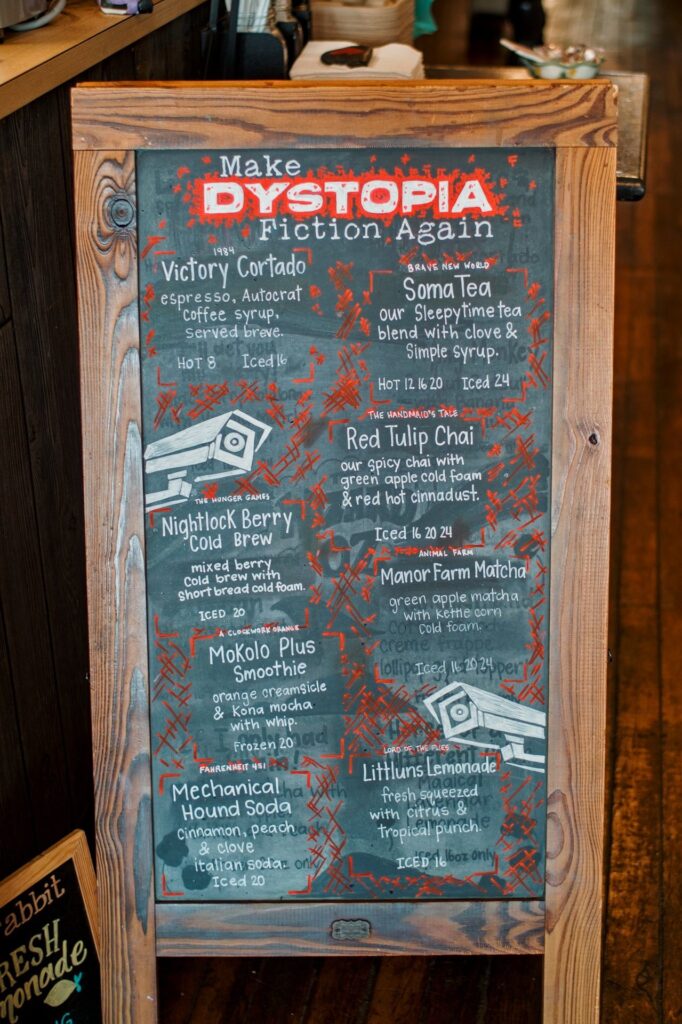 Make
DYSTOPIA
Fiction Again
1984
Victory Cortado
espresso, Autocrat
coffee syrup.
Served breve.
HOT 8 Iced 16
THE HUNGER GAMES
Nightlock Berry
Cold Brew
mixed berry
cold brew with
shortbread cold foam.
ICED 20
A CLOCKWORK ORANGE
Mokolo Plus
Smoothie
orange creamsicle
& Kona mocha
with whip.
Frozen 20
FAHRENHEIT 451
Mechanical
Hound Soda
cinnamon, peach
& clove
italian soda.
Iced 20
BRAVE NEW WORLD
Soma Tea
our Sleepytime tea
blend with clove &
Simple syrup.
HOT 12 16 20 Iced 24
THE HANDMAID'S TALE
Red Tulip Chai
our spicy chai with
green apple cold foam
& red hot cinnadust.
Iced 16 20 24
ANIMAL FARM
Manor Farm Matcha
green apple matcha
with kettle corn
cold foam.
Iced 16 20 24
LORD OF THE FLIES
Littluns Lemonade
fresh squeezed
with citrus &
Tropical punch.
ICED 16
abbit
FRESH
monade